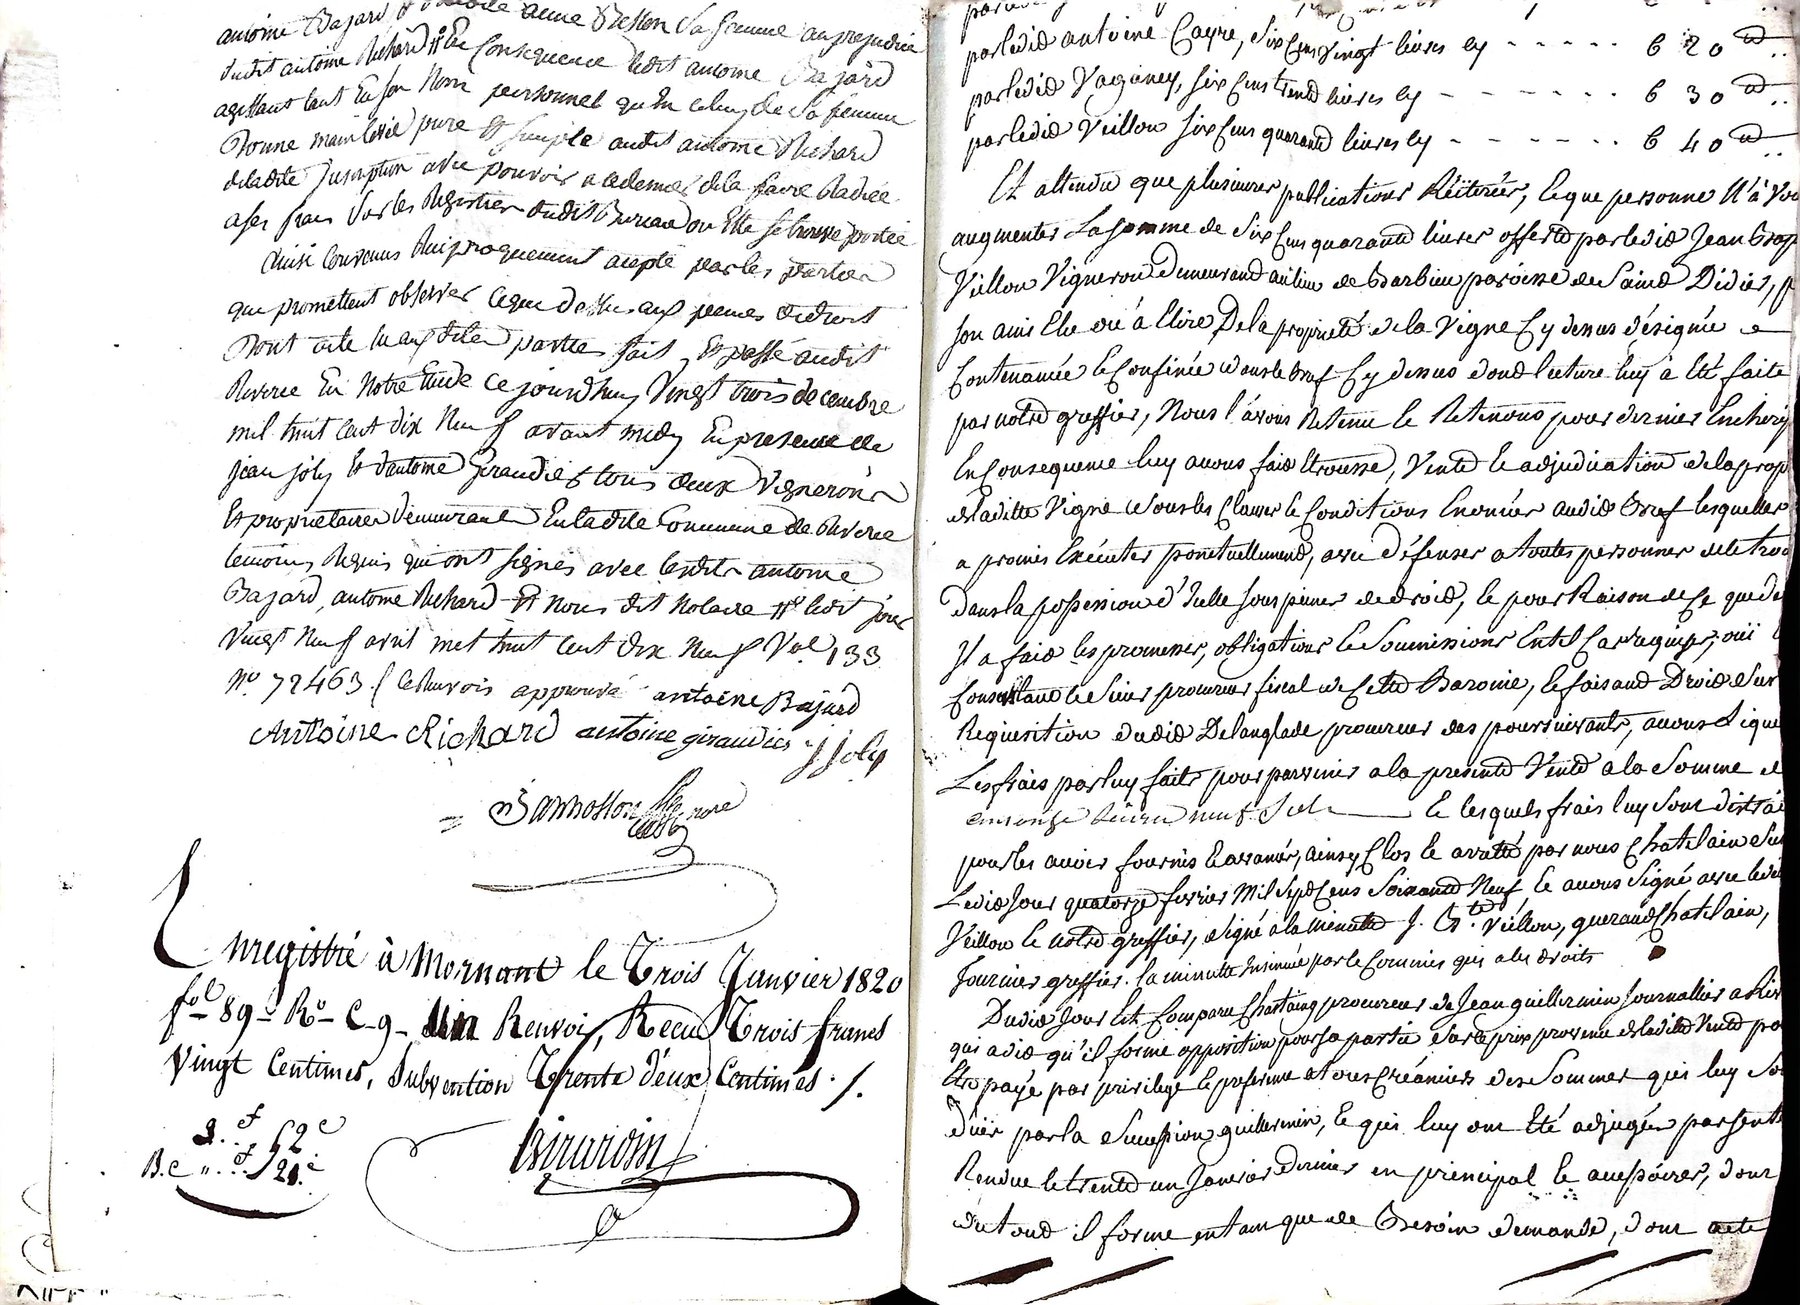 antoine Bajard anne Besson Sa femme au prejudice
dudit antoine Richard En Consequence ledit antoine Bajard
agissant tant En son Nom personnel qu'En celuy de Sa femme
Donne mainlevée pure Et simple audit antoine Richard
deladite Inscription avec pouvoir a cedernier dela faire Radiée
ases frais Sur les Registres dudit Bureau ou Elle se trouve portée
Ainsi Convenus Reciproquement acepté par les parties
qui promettent observer Ceque Dessus aux peines dedroit
Dont acte aux dites parties fait Et passé audit
Riverie En Notre Etude Ce jourd'huy Vingt trois decembre
mil huit Cent Dix Neuf avant midy En presence de
jean joly Et d'antoine Giraudier tous deux Vignerons
Et proprietaires Demeurant En ladite Commune de Riverie
temoins Requis qui ont signés avec lesdits antoine
Bajard, antoine Richard Et Nous dit Notaire ledit jour
Vingt Neuf avril mil huit Cent dix Neuf Vol. 133
No. 72463 / Ce Renvois approuvé antoine Bajard
Antoine Richard antoine giraudier J Joly
nore
Enregistré à Mornant le Trois Janvier 1820
fol 89 Ro C 9 - Un Renvoi, Recu Trois francs
Vingt Centimes, Subvention Trente deux Centimes ./.
3.. f 52 c
Girardin
par ledid antoine Cayre, Six Cens Vingt livres Cy - - - - - 620 ..
par ledid Vaganey, Six Cens trente livres Cy - - - - - - 630 ..
par ledid Vuillon Six Cens quarante livres Cy - - - - - - 640 ..
Et attendu que plusieures publications Réïterées, Et que personne N'à Vou
augmenter La Somme de Six Cens quarante livres offerte par ledid Jean Bap
Veillon Vigneron demeurand au lieu de Barbieu paroisse de Saind Didier, p
Son ami Elu ou à Elire Dela proprieté de la Vigne Cy dessus désignée
Contenanée Et Confinée dans le Bref Cy dessus dond lecture luy à Eté faite
par notre greffier, Nous l'àvons Retenu Et Retenons pour dernier Encheri
En Consequence luy avons faid Etrousse, Vente Et adjudication dela prop
deladitte Vigne sous les Clauses Et Conditions Enoncées audid Bref lesquelles
a promis Exécuter ponctuellement, avec Défenses a toutes personnes dele trou
Dans la possession d'Icelle sous peines de droid, Et pour Raison de Ce que de
Il a faid les promesses, obligations Et Soumissions Entel Cas requises, ouï
Consultant le Sieur procureur fiscal de Cette Baronie, Et faisand Droid Sur
Requisition dudid Delanglade procureur des poursuivants, avons Lique
Les frais par luy faits pour parvenir a la presente Vente a la Somme de
Et lesquels frais luy Sont distrai
pour les avoir fournis Et avancés, ainsy Clos Et arrêté par nous Chatelain Sus
Ledid Jour quatorze fevrier Mil Sept Cens Soixante Neuf Et avons Signé avec ledit
Veillon Et notre greffier, Signé à la Minutte J. Bte. Véillon, querand Chatelain,
Fournier greffier. la minutte Insinuée par le Commis qui a les droits
Dudid Jour Est Comparu Chastaing procureur de Jean guillermin Journallier a Riv
qui a did qu'il forme opposition pour Sa partie Sur le prix provenu de ladite Vente po
Etre payé par privilege Et preference a tous Créanciers des Sommes qui luy So
dües par la Succession guillermin, Et qui luy ont Eté adjugées par Sente
Rendue le trente un Janvier dernier en principal Et accessoires, dont
du tout il forme en tant que de Besoin demande, dont acte